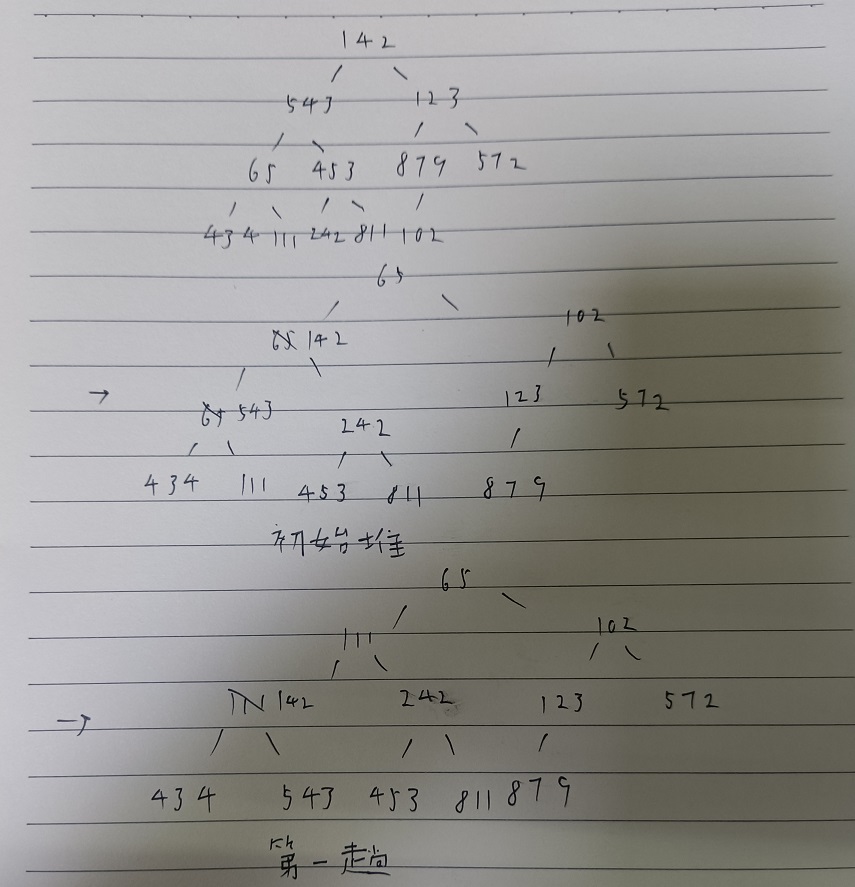 142
543 123
65 453 879 572
434 111 242 811 102
65
102
142
→ 543 123 572
242
434 111 453 811 879
初始堆
65
111 102
→ 142 242 123 572
434 543 453 811 879
第一趟